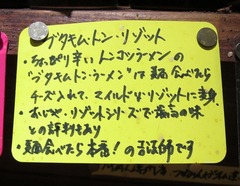 ブタキム・トン・リゾット
・ちょっぴり辛いトンコツラーメンの
"ブタキム・トン・ラーメン"は麺食べたら
チーズ入れて、マイルドなリゾットに変身
・おじや・リゾットシリーズで最高の味
との評判もあり
・麺食べたら本番!の
です